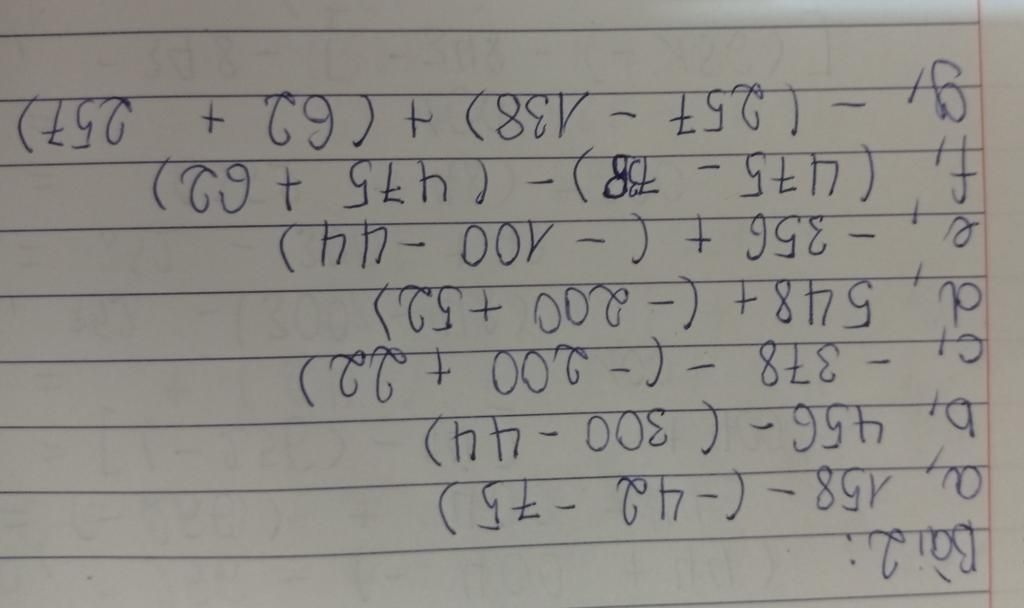 Bài 2:
a, 158 - (-42 - 75)
b, 456 - (300 - 44)
c, - 378 - (-200 + 22)
d, 548 + (-200 + 52)
e, - 356 + (- 100 - 44)
f, (475 - 138) - (475 + 62)
g, - (257 - 138) + (62 + 257)